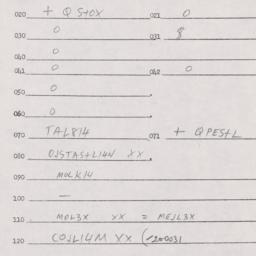 020 + QStOX 021 0
030 0 031 8
040 0
041 0 042 0
050 0
060 0
070 TAL814 071 + QPEStL
080 OJSTASTLI4N XX
090 MOLK14
100 —
110 MOL3X XX = MEJL3X
120 COJLI4M XX